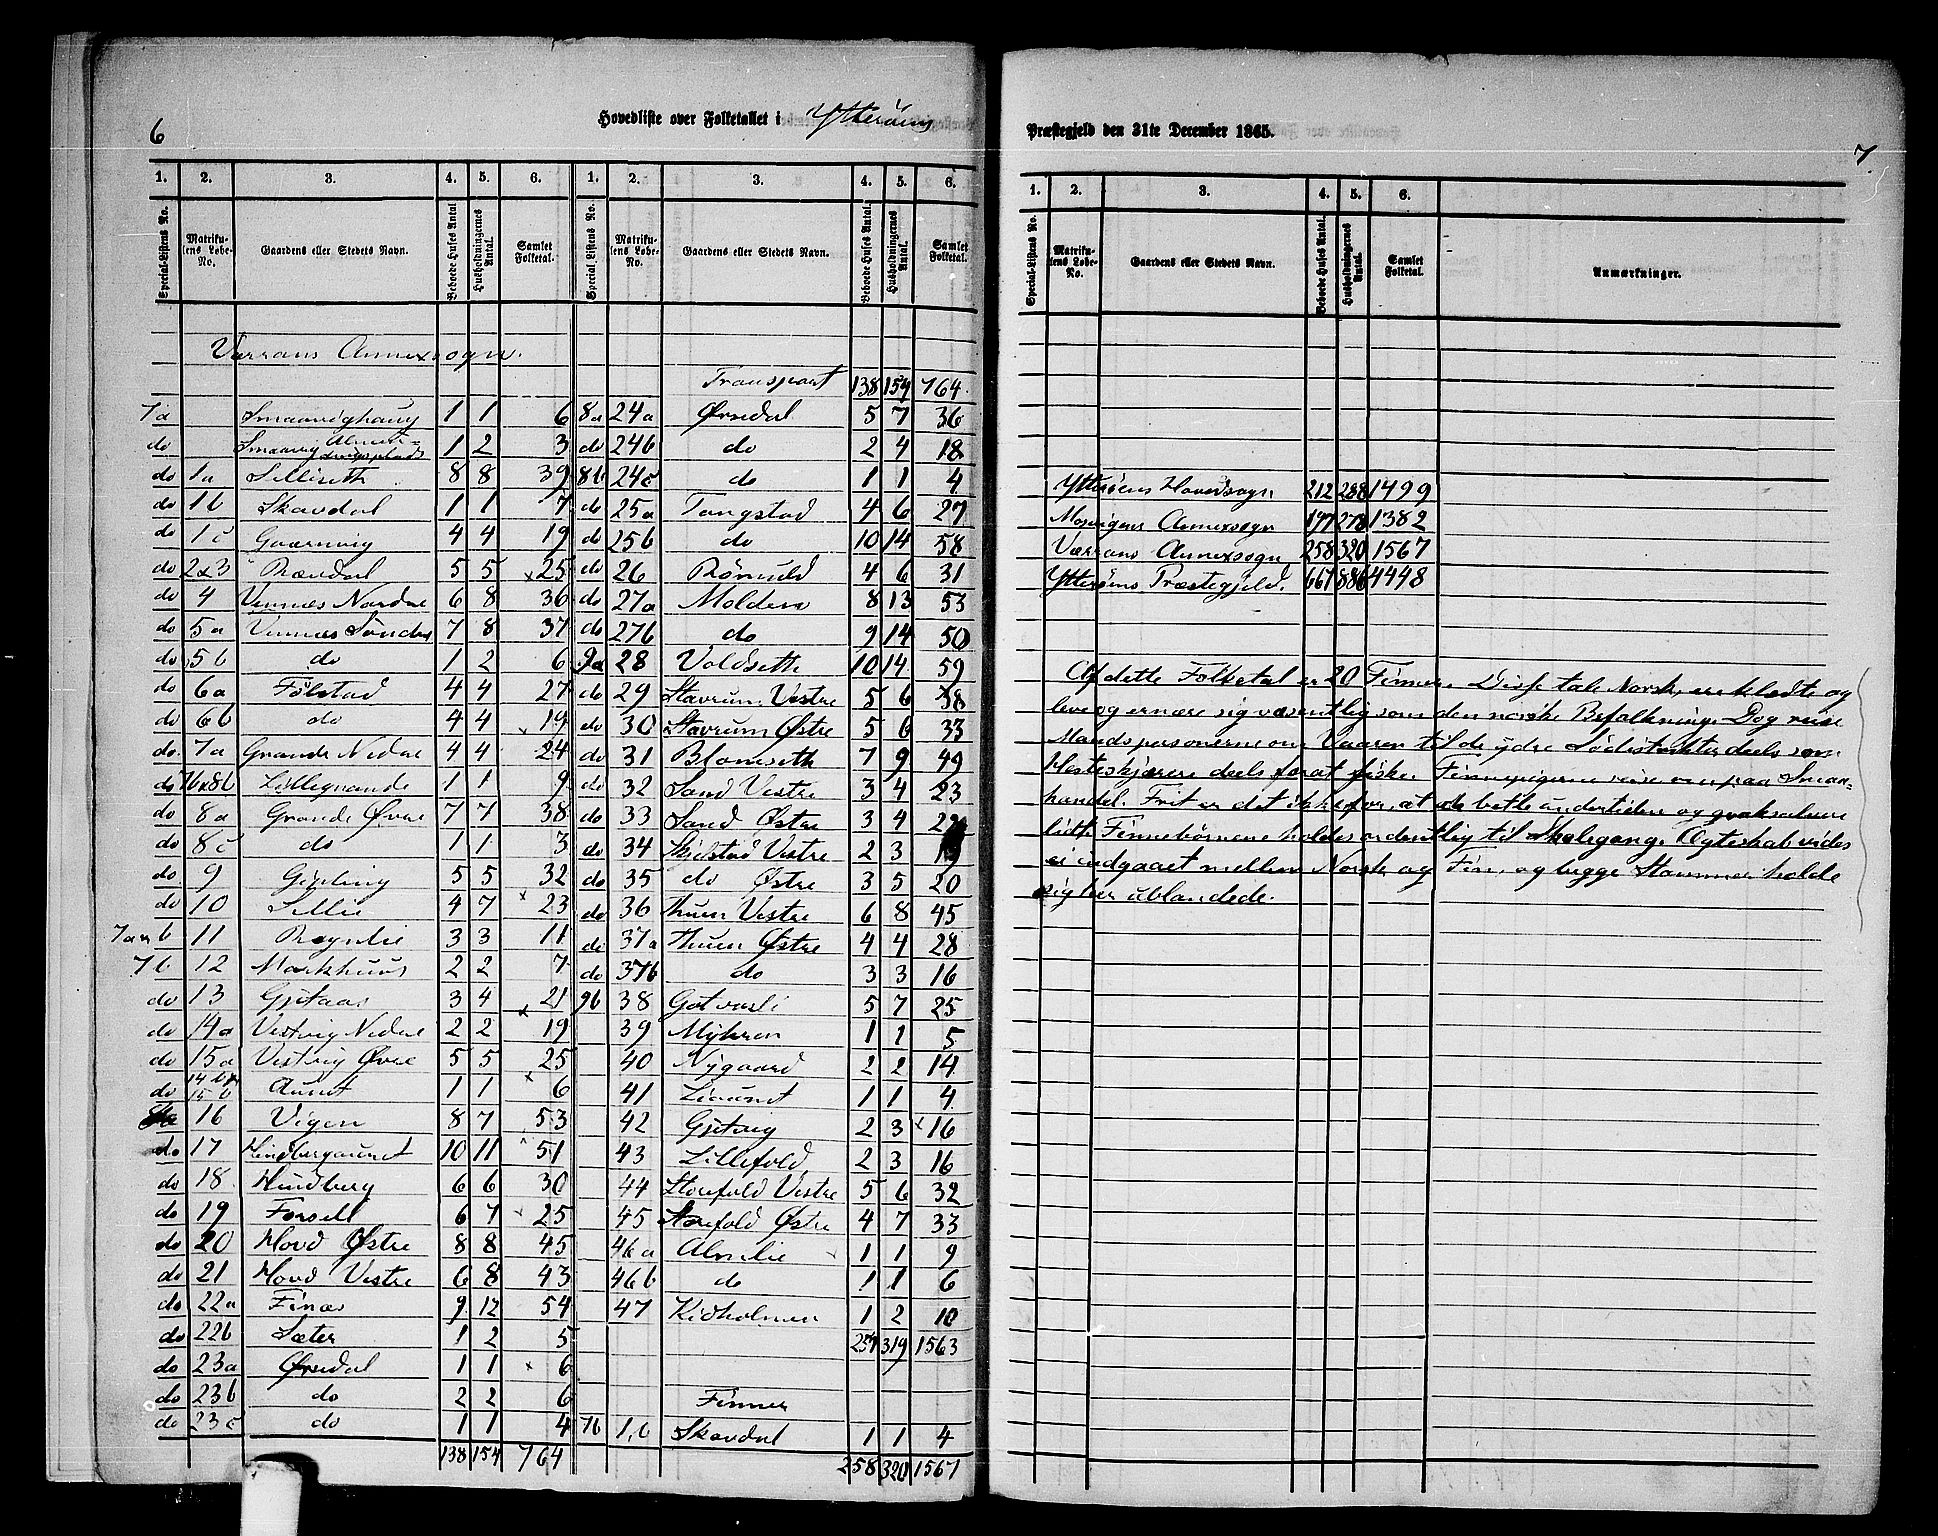 6
Hovedliste over Folketallet i Ytterøens
1. 2. 3. 4. 5. 6. 1. 2. 3. 4. 5. 6.
Special-Listens No. Matrikulens Løbe-No. Gaardens eller Stedets Navn. Beboede Huses Antal Husholdningernes Antal. Samlet Folketal. Special-Listens No. Matrikulens Løbe-No. Gaardens eller Stedets Navn. Beboede Huses Antal. Husholdningernes Antal. Samlet Folketal.
Værrans Annexsogn.
Transport 138 154 764.
7a Smaavighaug 1 1 6 8a 24a Ørsdal 5 7 36
do Smaavig Almendingsplads 1 2 3 do 24b do 2 4 18
do 1a Selliseth 8 8 39 8b 24c do 1 1 4
do 1b Skavdal 1 1 7 do 25a Tangstad 4 6 27
do 1c Gaarnvig 4 4 19 do 25b do 10 14 58
do 2&3 Rævdal 5 5 25 do 26 Rømuld 4 6 31
do 4 Vennæs Nordre 6 8 36 do 27a Molden 8 13 53
do 5a Vennæs Søndre 7 8 37 do 27b do 9 14 50
do 5b do 1 2 6 9a 28 Voldseth 10 14 59
do 6a Følstad 4 4 27 do 29 Stavrum Vestre 5 6 38
do 6b do 4 4 19 do 30 Stavrum Østre 5 6 33
do 7a Grande Nedre 4 4 24 do 31 Blomseth 7 9 49
do 7b&8b Lillegrande 1 1 9 do 32 Sand Vestre 3 4 23
do 8a Grande Øvre 7 7 38 do 33 Sand Østre 3 4
do 8c do 1 1 3 do 34 Skjelstad Vestre 2 3
do 9 Gipling 5 5 32 do 35 do Østre 3 5 20
do 10 Sellie 4 7 23 do 36 Thuen Vestre 6 8 45
7a&b 11 Ragnlie 3 3 11 do 37a Thuen Østre 4 4 28
7b 12 Markhuus 2 2 7 do 37b do 3 3 16
do 13 Gjetaas 3 4 21 9b 38 Gotvasli 5 7 25
do 14a Vestvig Nedre 2 2 19 39 Myhren 1 1 5
do 15a Vestvig Øvre 5 5 25 40 Nygaard 2 2 14
do 14b& 15b Aunet 1 1 6 41 Liaunet 1 1 4
16 Vigen 8 7 53 42 Gjetvig 2 3 16
do 17 Hindbergaunet 10 11 51 43 Lillefold 2 3 16
do 18 Hindberg 6 6 30 44 Storfold Vestre 5 6 32
do 19 Forsell 6 7 25 45 Storfold Østre 4 7 33
do 20 Hovd Østre 8 8 45 46a Almlie 1 1 9
do 21 Hovd Vestre 6 8 43 46b do 1 1 6
do 22a Finæs 9 12 54 47 Kidholmen 1 2 10
do 22b Sæter 1 2 5 257 319 1563
do 23a Ørsdal 1 1 6
do 23b do 2 2 6 Finner
do 23c do 1 1 4 7b 1,b Skavdal 1 1 4
138 154 764 258 320 1567
Præstegjeld den 31te December 1865.
7
1. 2. 3. 4. 5. 6.
Special-Listens No. Matrikulens Løbe-No. Gaardens eller Stedets Navn. Beboede Huses Antal. Husholdningernes Antal. Samlet Folketal. Anmærkninger.
Ytterøens Hovedsogn 212 288 1499
Mosvigens Annexsogn 197 278 1382
Værrans Annexsogn 258 320 1567
Ytterøens Præstegjeld. 667 886 4448
Af dette Folketal er 20 Finner. Disse tale Norsk, ere klædte og
leve og ernære sig væsentlig som den norske Befolkning. Dog reise
Mandspersonerne om Vaaren til de ydre Sødistrikter deels som
Hesteskjærere deels forat fiske. Finnepigerne reise om paa Smaa-
handel. Frit er det ikke for, at de betle undertiden og
lidt. Finnebørnene holdes ordentlig til Skolegang. Ægteskab vides
ei indgaaet mellem Norsk og Fin, og begge Stammer holde
sig her ublandede.